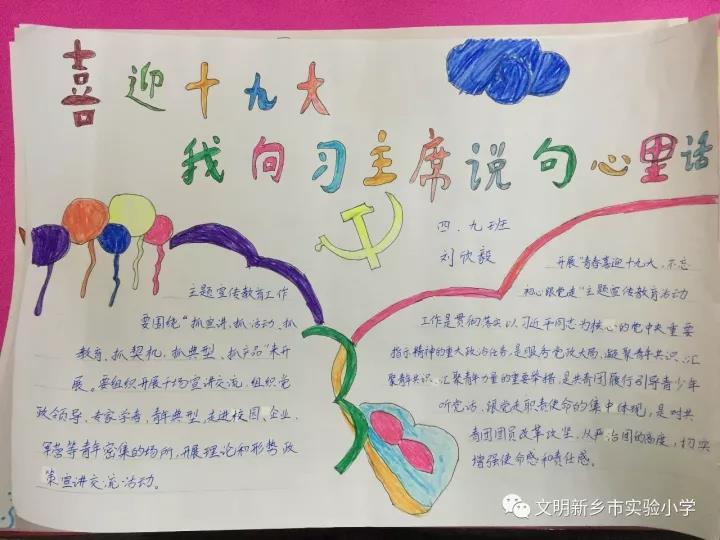 喜迎十九大
我向习主席说句心里话
四.九班
刘欣毅
主题宣传教育工作
要围绕“抓宣讲、抓活动、抓
教育、抓契机、抓典型、抓产品”来开
展。要组织开展千场宣讲交流,组织党
政领导、专家学者、青年典型,走进校园、企业、
军营等青年密集的场所,开展理论和形势政
策宣讲交流活动。
开展“青春喜迎十九大,不忘
初心跟党走”主题宣传教育活动
工作是贯彻落实以习近平同志为核心的党中央重要
指示精神的重大政治任务,是服务党政大局、凝聚青年共识、汇
聚青年共识、汇聚青年力量的重要举措,是共青团履行引导青少年
听党话、跟党走职责使命的集中体现,是对共
青团团员改革攻坚、从严治团的高度,切实
增强使命感和责任感。
文明新乡市实验小学